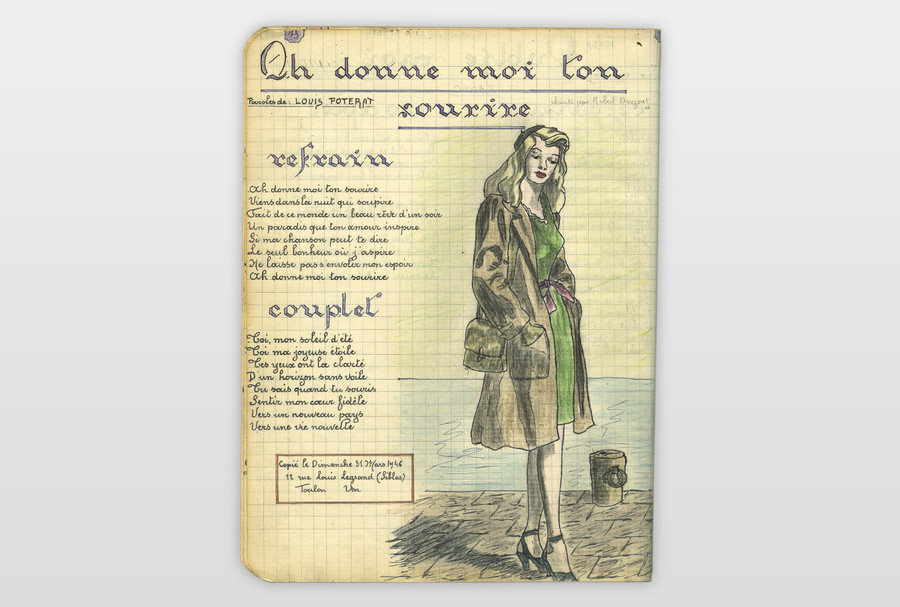 Oh donne moi ton
sourire
Paroles de : LOUIS POTERAT
chanté par Robert
refrain
Ah donne moi ton sourire
Viens dans la nuit qui soupire
Fait de ce monde un beau rêve d'un soir
Un paradis que ton amour inspire
Si ma chanson peut te dire
Le seul bonheur où j'aspire
Ne laisse pas s'envoler mon espoir
Ah donne moi ton sourire
couplet
Toi, mon soleil d'été
Toi ma joyeuse étoile
Tes yeux ont la clarté
D'un horizon sans voile
Tu sais quand tu souris
Sentir mon cœur fidèle
Vers un nouveau pays
Vers une vie nouvelle
Copié le Dimanche 31 Mars 1946
12 rue Louis Legrand (Siblas)
Toulon Var